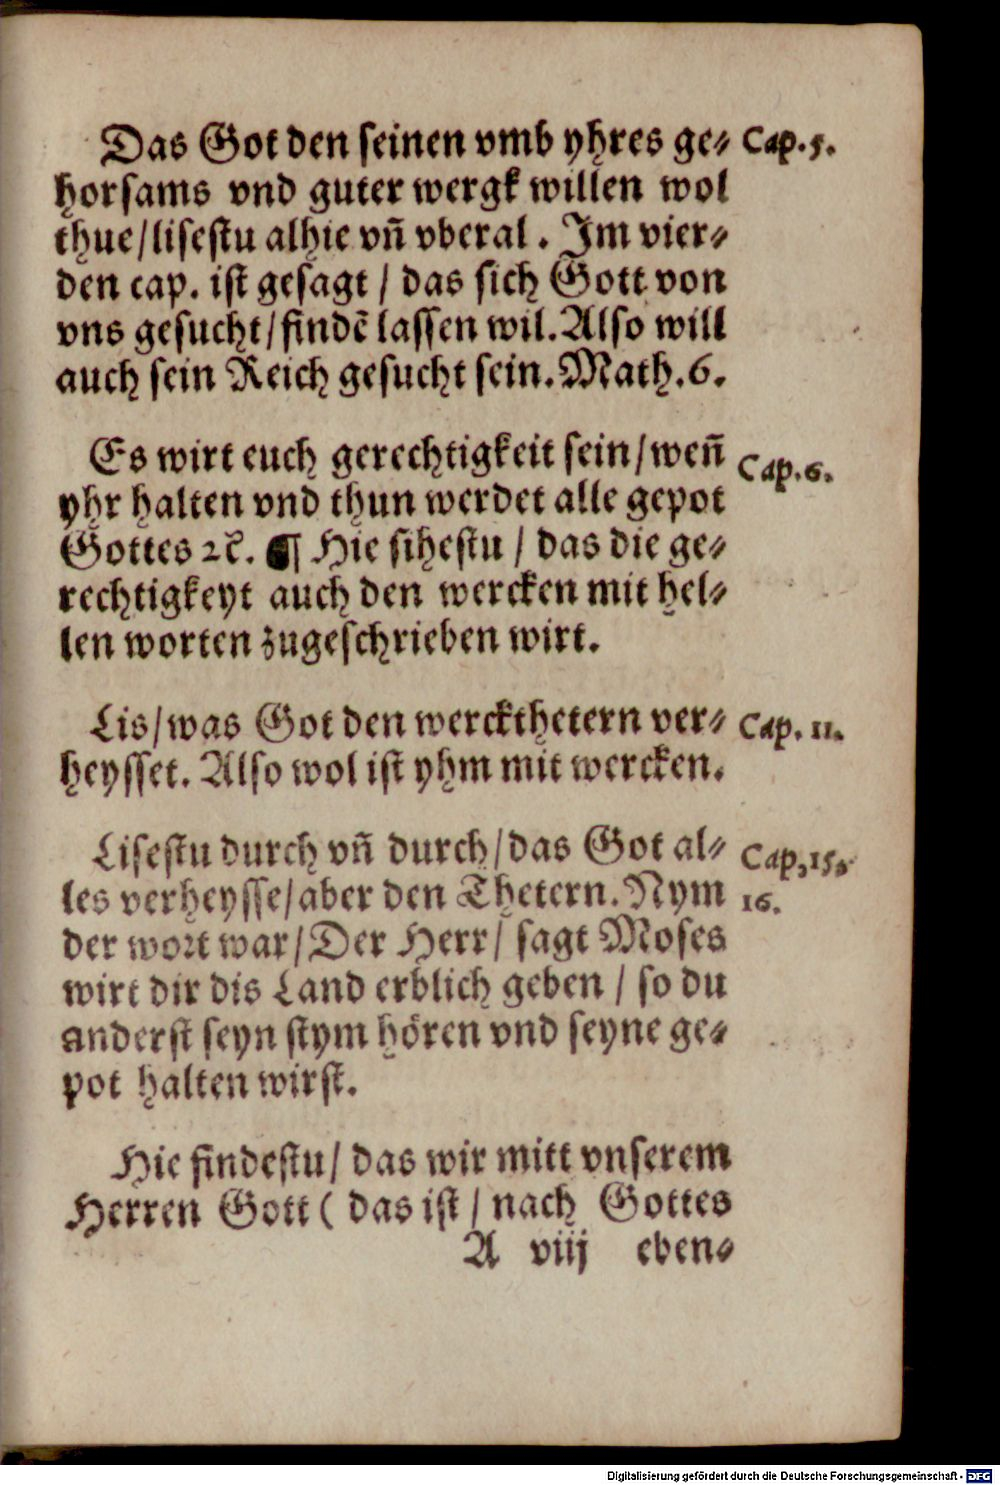 Das Got den seinen vmb yhres ge⸗ Cap. 5.
horsams vnd guter wergk willen wol
thue/lisestu alhie vñ vberal. Im vier⸗
den cap. ist gesagt / das sich Gott von
vns gesucht/findẽ lassen wil. Also will
auch sein Reich gesucht sein. Math. 6.
Es wirt euch gerechtigkeit sein/weñ Cap. 6.
yhr halten vnd thun werdet alle gepot
Gottes ⁊c. ¶ Hie sihestu / das die ge⸗
rechtigkeyt auch den wercken mit hel⸗
len worten zugeschrieben wirt.
Lis/was Got den werckthetern ver⸗ Cap. 11.
heysset. Also wol ist yhm mit wercken.
Lisestu durch vñ durch/das Got al⸗ Cap, 15.
les verheysse/aber den Thetern. Nym 16.
der wort war/Der Herr/ sagt Moses
wirt dir dis Land erblich geben / so du
anderst seyn stym hören vnd seyne ge⸗
pot halten wirst.
Hie findestu/ das wir mitt vnserem
Herren Gott ( das ist / nach Gottes
A viij eben⸗
Digitalisierung gefördert durch die Deutsche Forschungsgemeinschaft - DFG